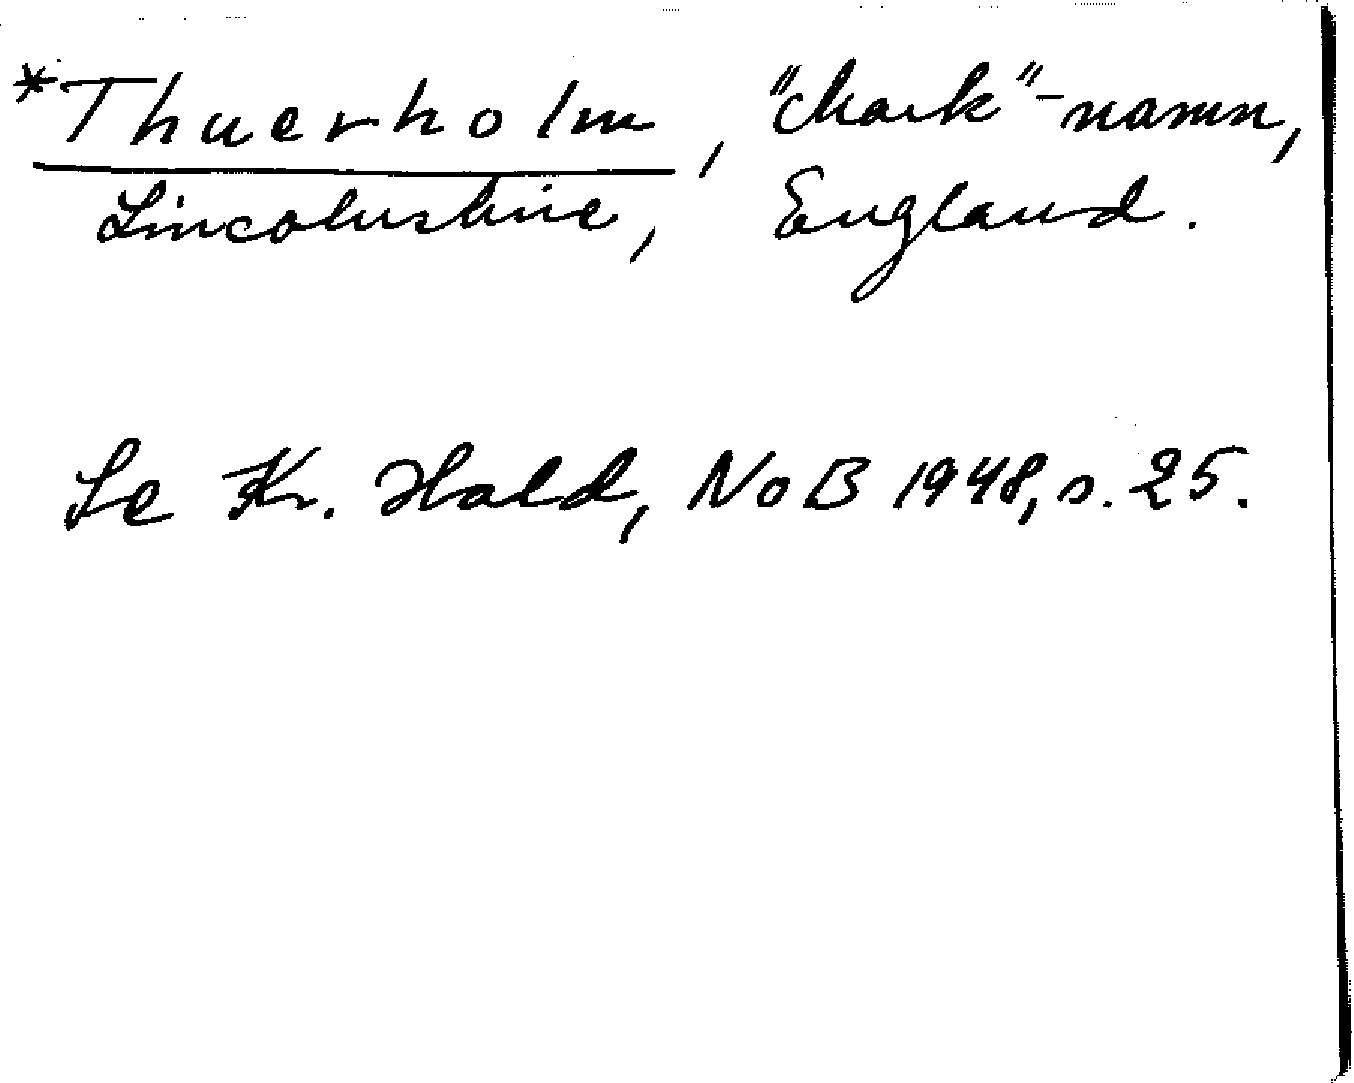 *Thuerholm, "Mark"-namn,
Lincolnshire, England.
Se Kr. Hald, NoB 1948, s. 25.